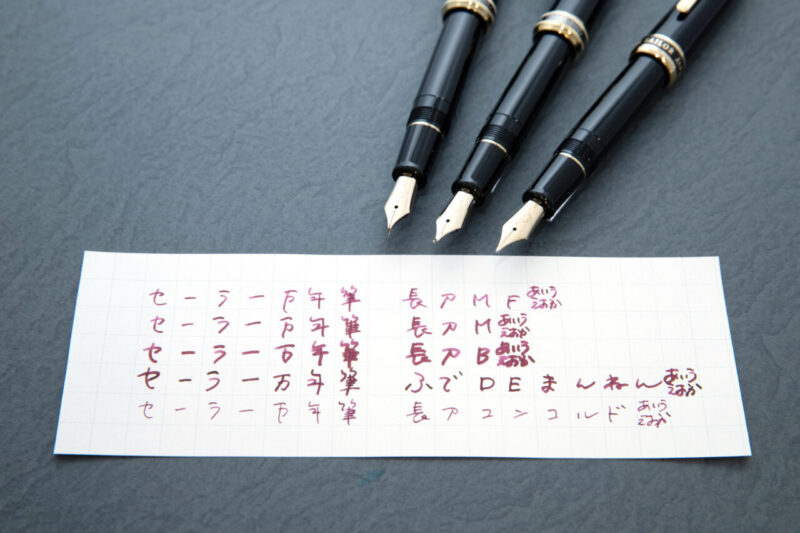 SAILOR
セーラー万年筆 長刀MF あいうえおか
セーラー万年筆 長刀M あいうえおか
セーラー万年筆 長刀B あいうえおか
セーラー万年筆 ふでDEまんねん あいうえおか
セーラー万年筆 長刀コンコルド あいうえおか